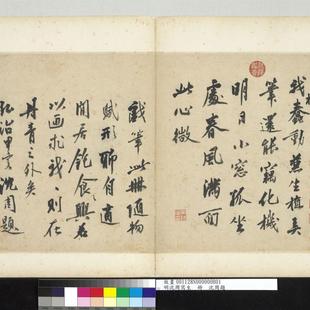 我蠢動兼生植弄
筆還能竊化機
明日小窗孤坐
處春風滿面
此心微
戲筆此冊隨物
賦形聊自適
閒居飽食之興若
以画求我〻則在
丹青之外矣
弘治甲寅沈周題
故畫 001128N000000001
明沈周寫生 冊 沈周題